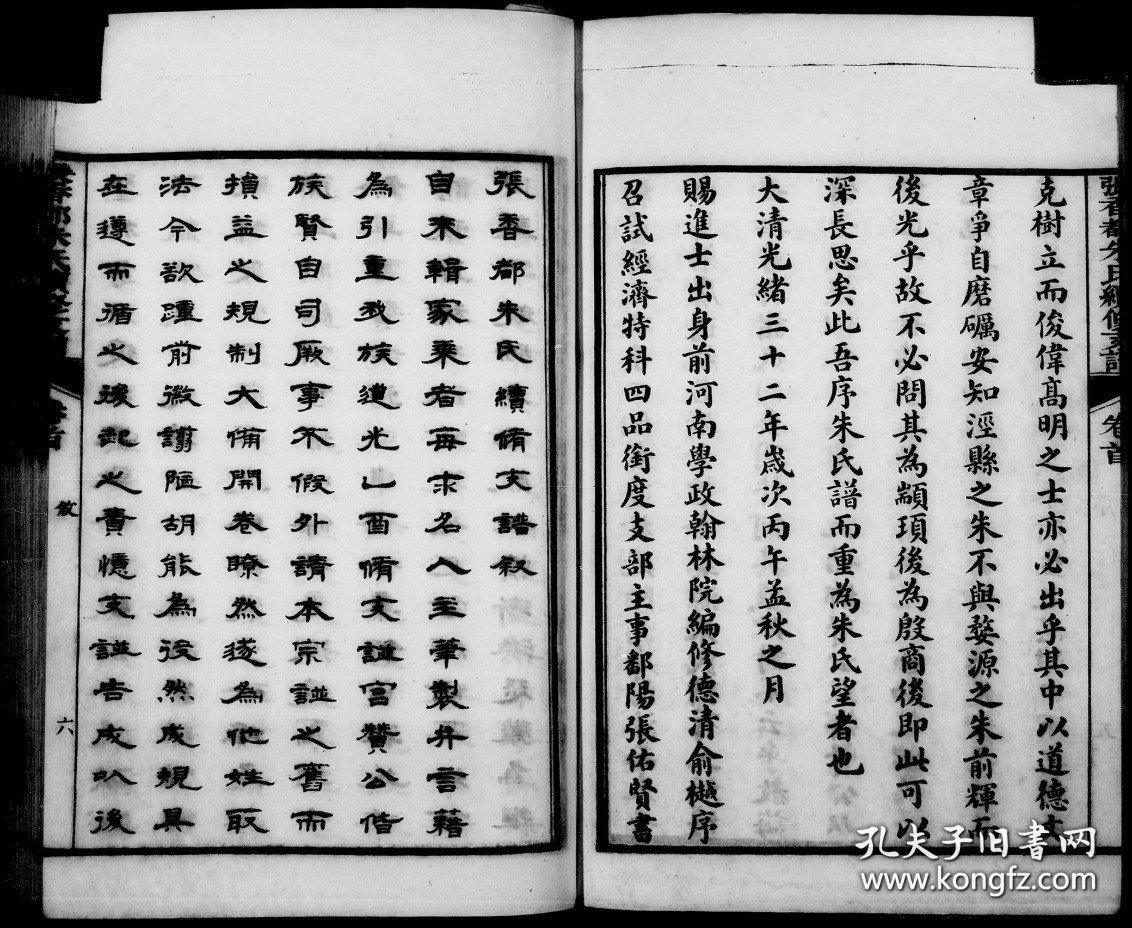 張香都朱氏續修支譜
卷首
克樹立而俊偉高明之士亦必出乎其中以道德文
章爭自磨礪安知涇縣之朱不與婺源之朱前輝而
後光乎故不必問其為顓頊後為殷商後即此可以
深長思矣此吾序朱氏譜而重為朱氏望者也
大清光緒三十二年歲次丙午孟秋之月
賜進士出身前河南學政翰林院編修德清俞樾序
召試經濟特科四品銜度支部主事鄱陽張佑賢書
張香都朱氏續脩支譜敘
自来輯家乘者每求名人主筆製弁言藉
為引重我族道光乙酉脩支譜宮贊公偕
族賢自司厥事不假外請本宗譜之舊而
損益之規制大備開卷瞭然遂為他姓取
法今欲踵前徽謭陋胡能為役然成規具
在遵而循之後起之責憶支譜告成以後
卷首
敘
六
孔夫子旧书网
www.kongfz.com